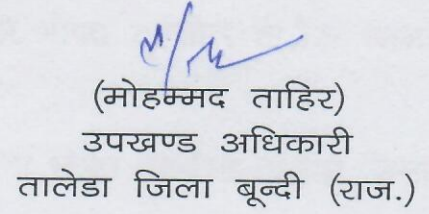 (मोहम्मद ताहिर)
उपखण्ड अधिकारी
तालेडा जिला बून्दी (राज.)